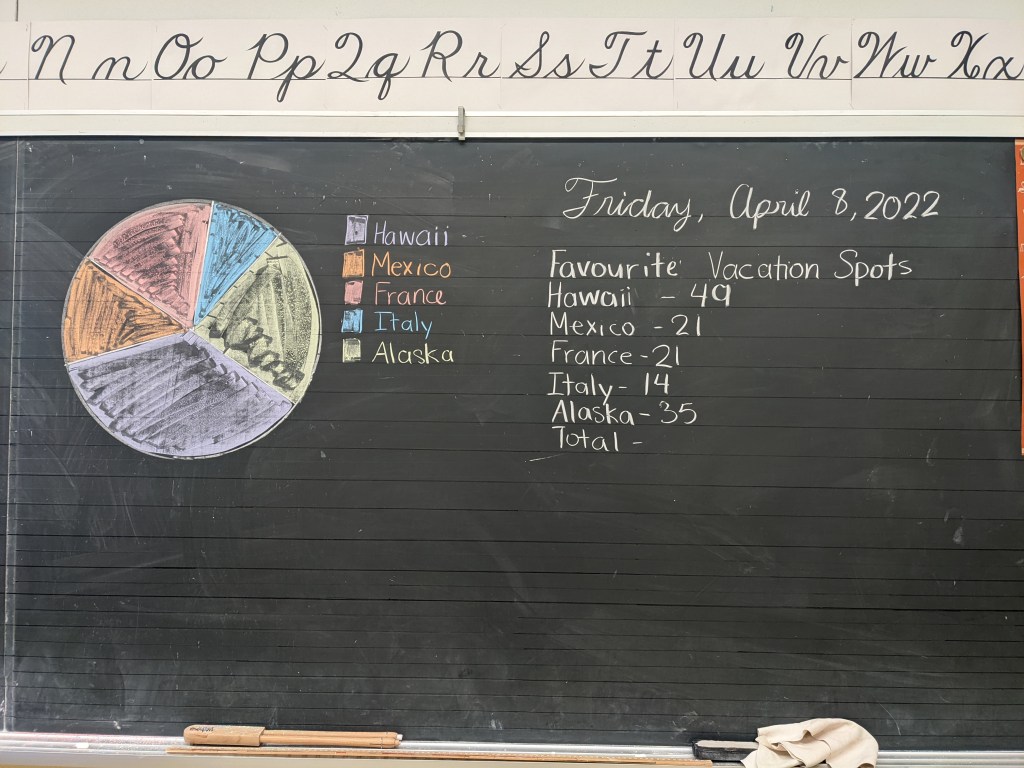 N n Oo Pp Qq Rr Ss Tt Uu Vv Ww Xx
Hawaii
Mexico
France
Italy
Alaska
Friday, April 8, 2022
Favourite Vacation Spots
Hawaii - 49
Mexico - 21
France - 21
Italy - 14
Alaska - 35
Total -